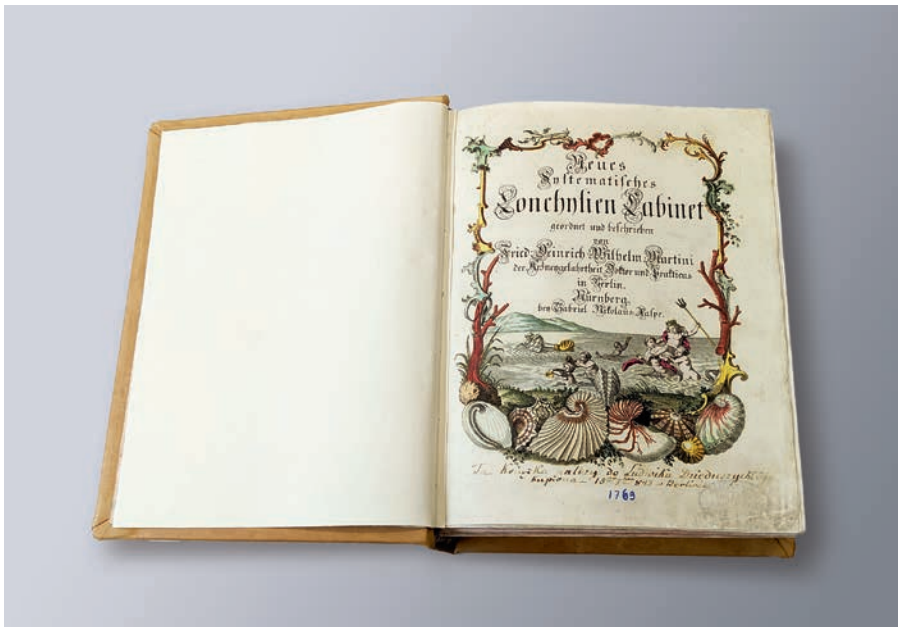 Neues
Systematisches
Conchylien Cabinet
geordnet und beschrieben
von
Fried. Heinrich Wilhelm Martini
der Doktor und Prakticus
in Berlin.
Nürnberg,
bey Gabriel Nikolaus Raspe.
Ta książka należy do Ludwika
kupiona w Berlinie
1769